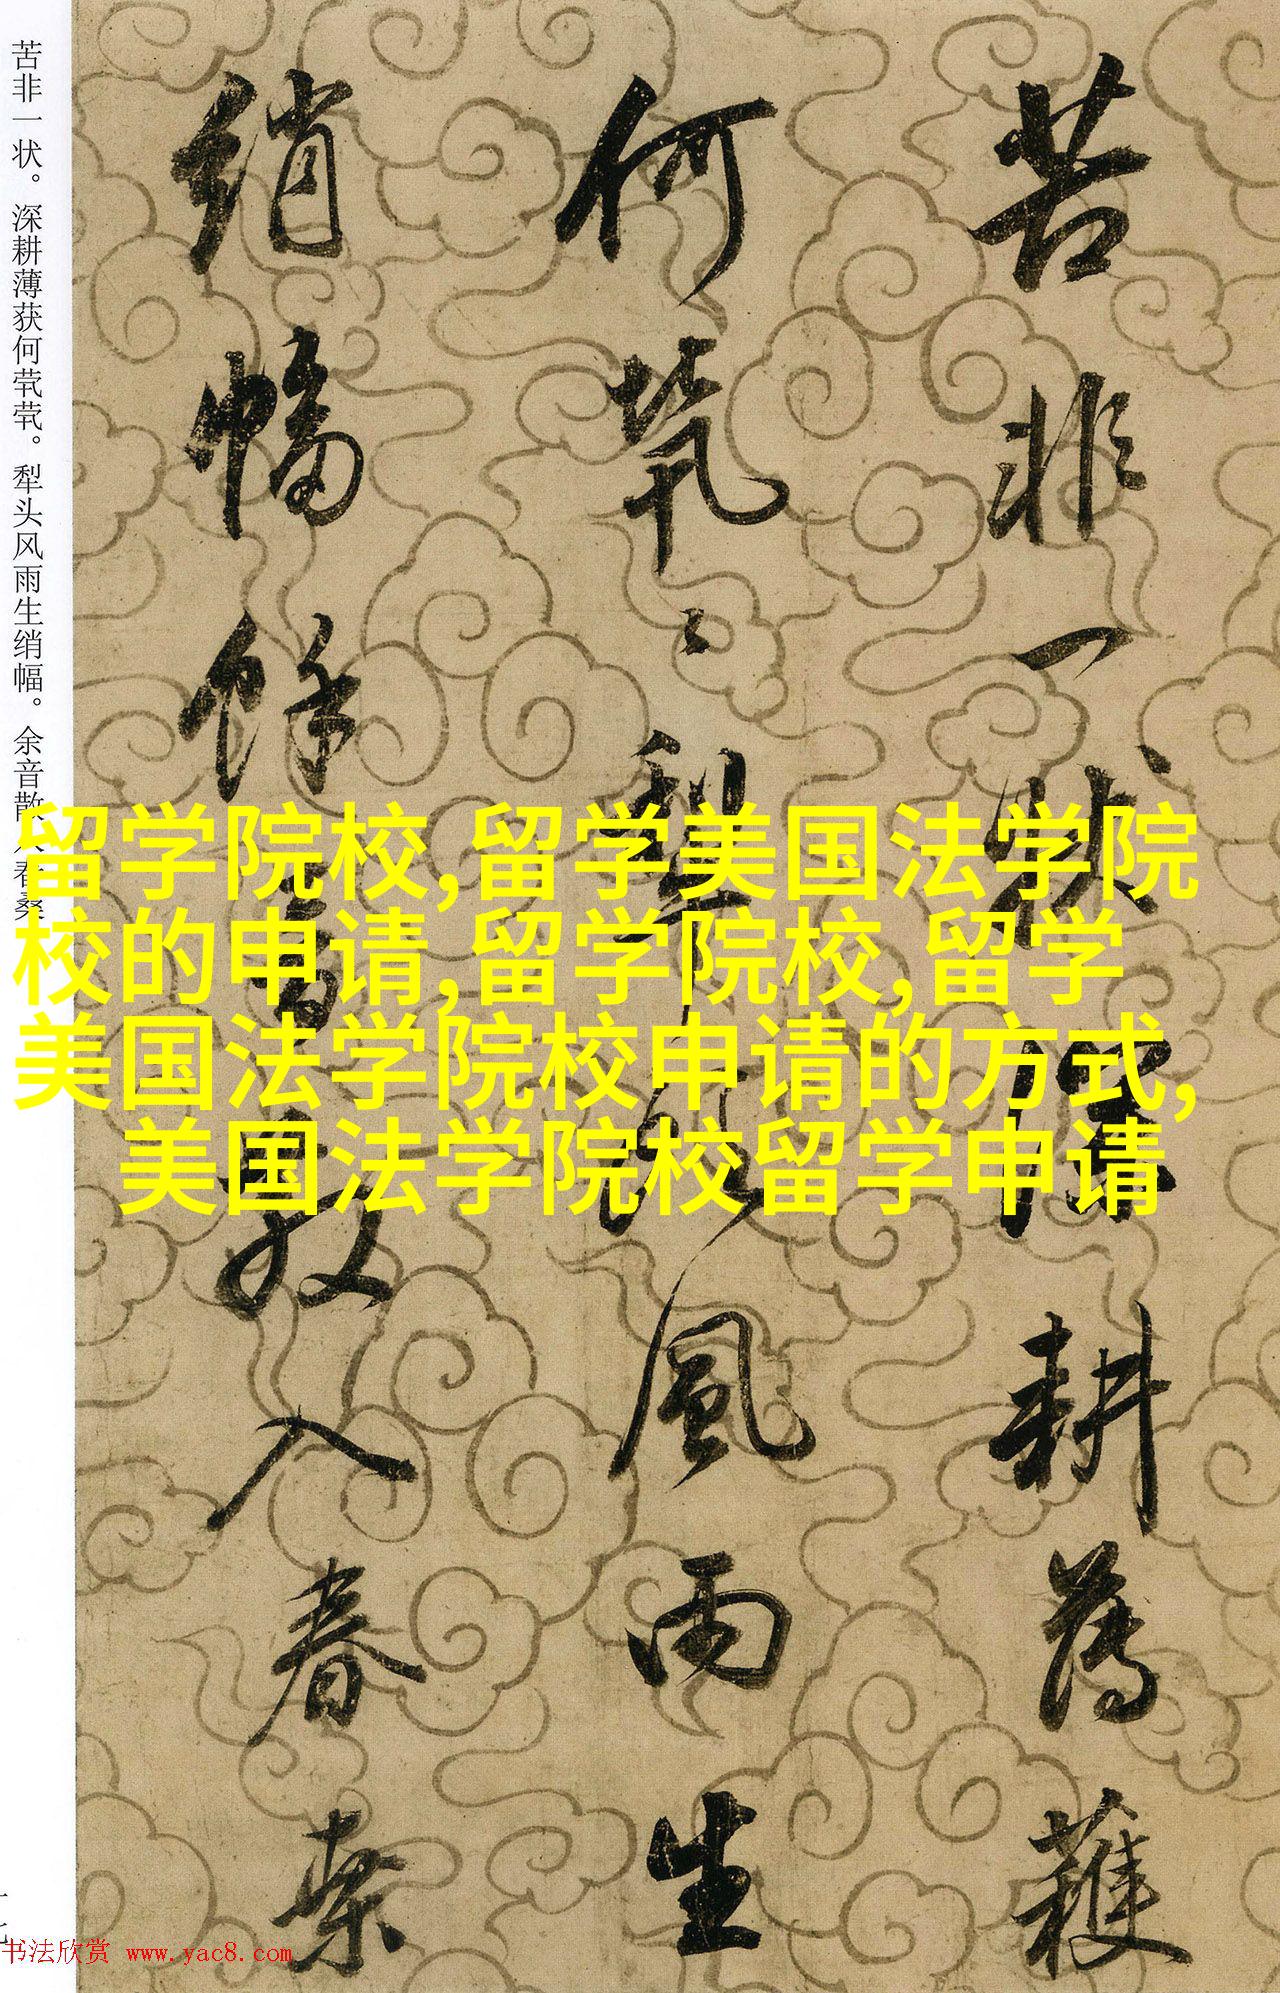 苦非一状深耕薄穫
何茕〻犁頭風雨生
绡幅餘音散入春桑
苦非一状。深耕薄获何茕茕。犁头风雨生绡幅。余音散入春桑
留学院校,留学美国法学院
校的申请,留学院校,留学
美国法学院校申请的方式,
美国法学院校留学申请
十七
书法欣赏 www.yac8.com